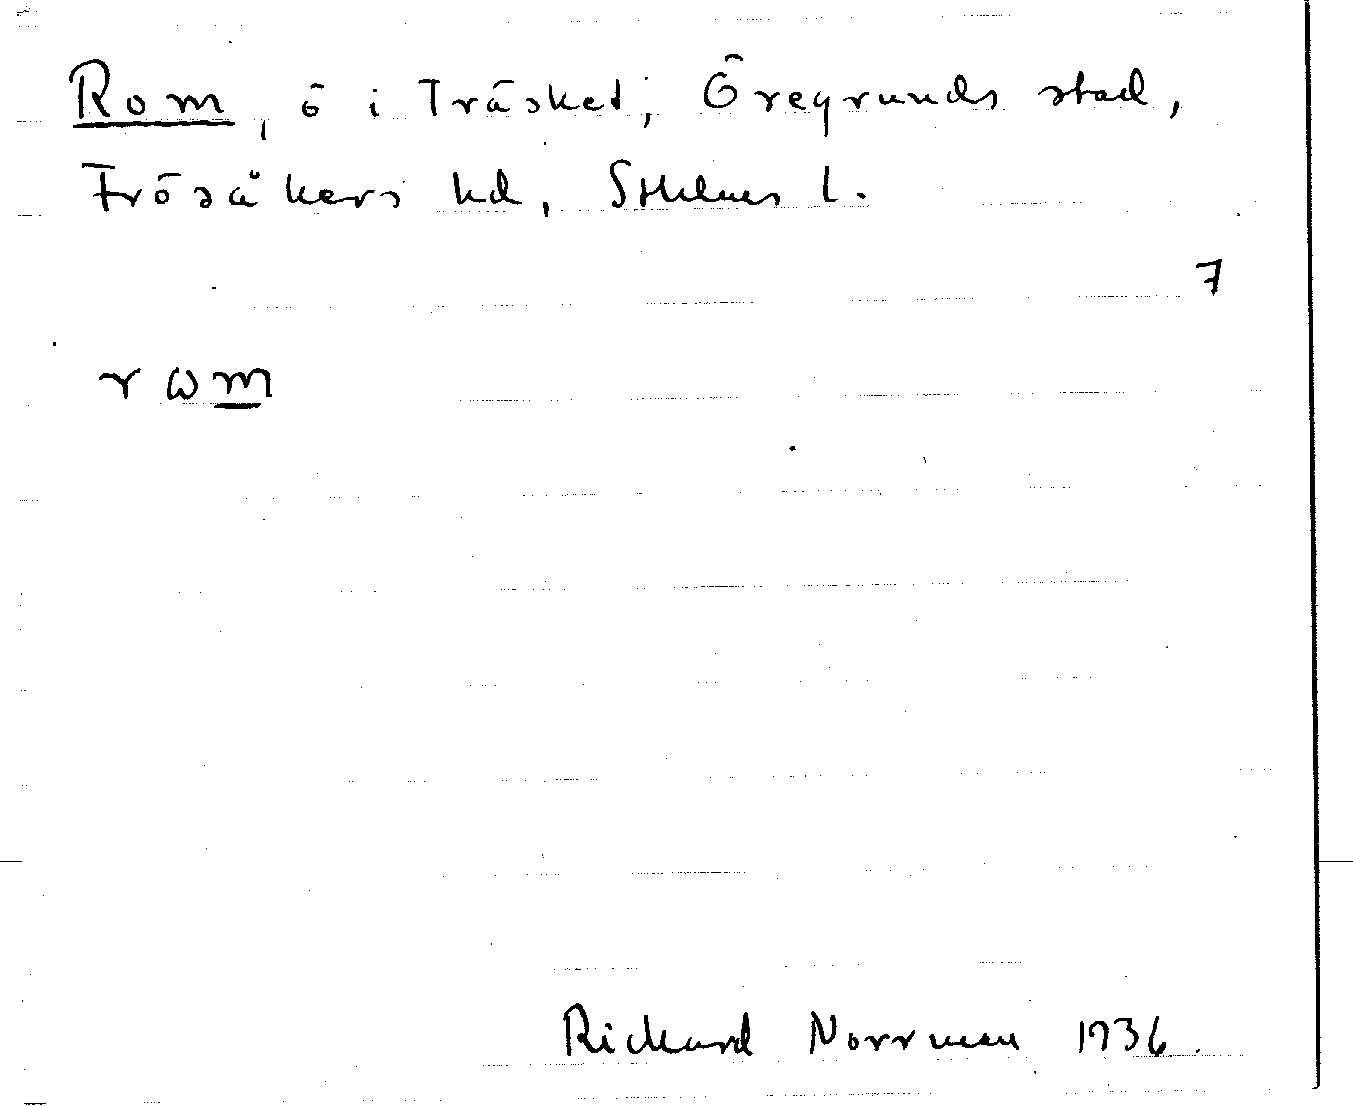 Rom, ö i Träsket, Öregrunds stad,
Frösåkers hd, Sthlms l.
7
rωm
Rickard Norrman 1936.